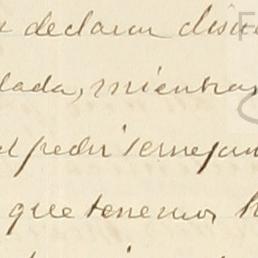 declarar
lada, mientras
pedir semejan
que tenemos h